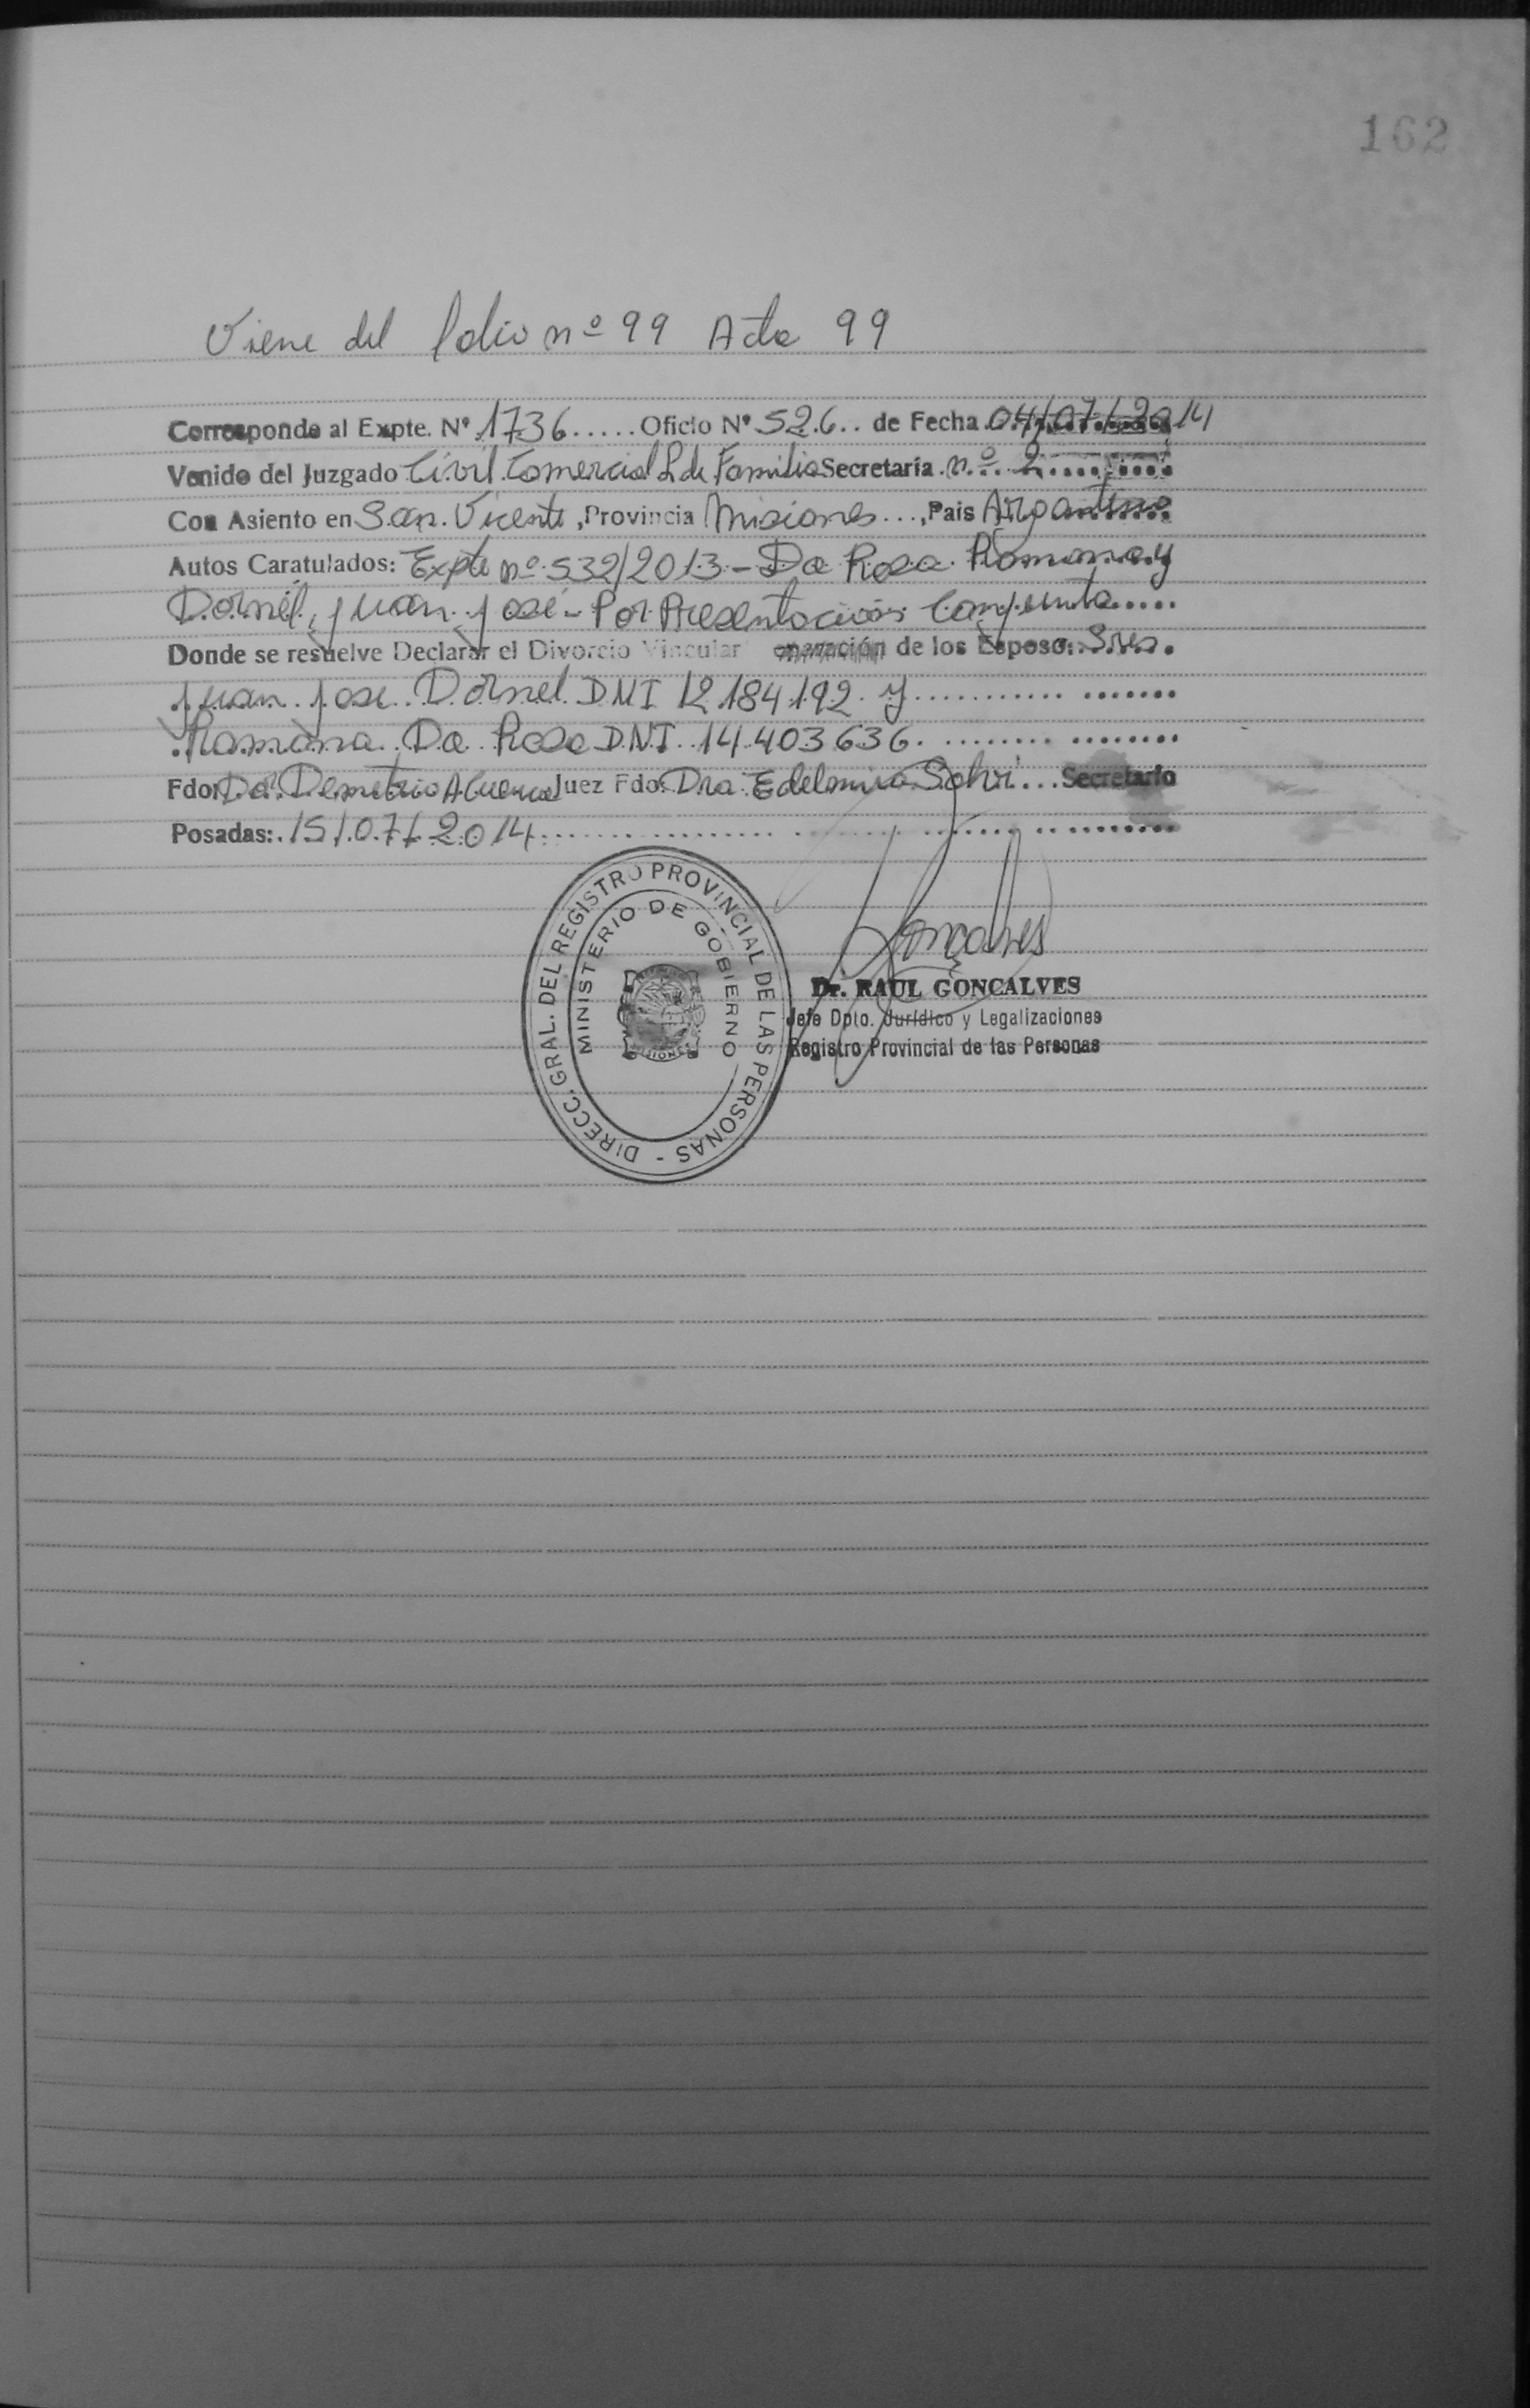 162
Viene del folio nº 99 Acta 99
Corresponde al Expte. Nº 1736..... Oficio Nº 526.. de Fecha 04/07/2014
Venido del Juzgado Civil Comercial L de Familia Secretaría nº 2
Con Asiento en San Vicente, Provincia Misiones..., Pais Argentina
Autos Caratulados: Expte nº 532/2013 - Da Rosa Ramona y
Dornel, Juan José - Por Presentación Conjunta.....
Donde se resuelve Declarar el Divorcio Vincular de los Esposo: Sres.
Juan Jose Dornel DNI 12.184.192 y
Ramona Da Rosa DNI 14.403.636.
Fdo: Dr. Demetrio A Cuenca Juez Fdo: Dra Edelmira Secretario
Posadas: 15/07/2014
DIRECC. GRAL. DEL REGISTRO PROVINCIAL DE LAS PERSONAS -
MINISTERIO DE GOBIERNO
MISIONES
Goncalves
Dr. RAUL GONCALVES
Jefe Dpto. Jurídico y Legalizaciones
Registro Provincial de las Personas